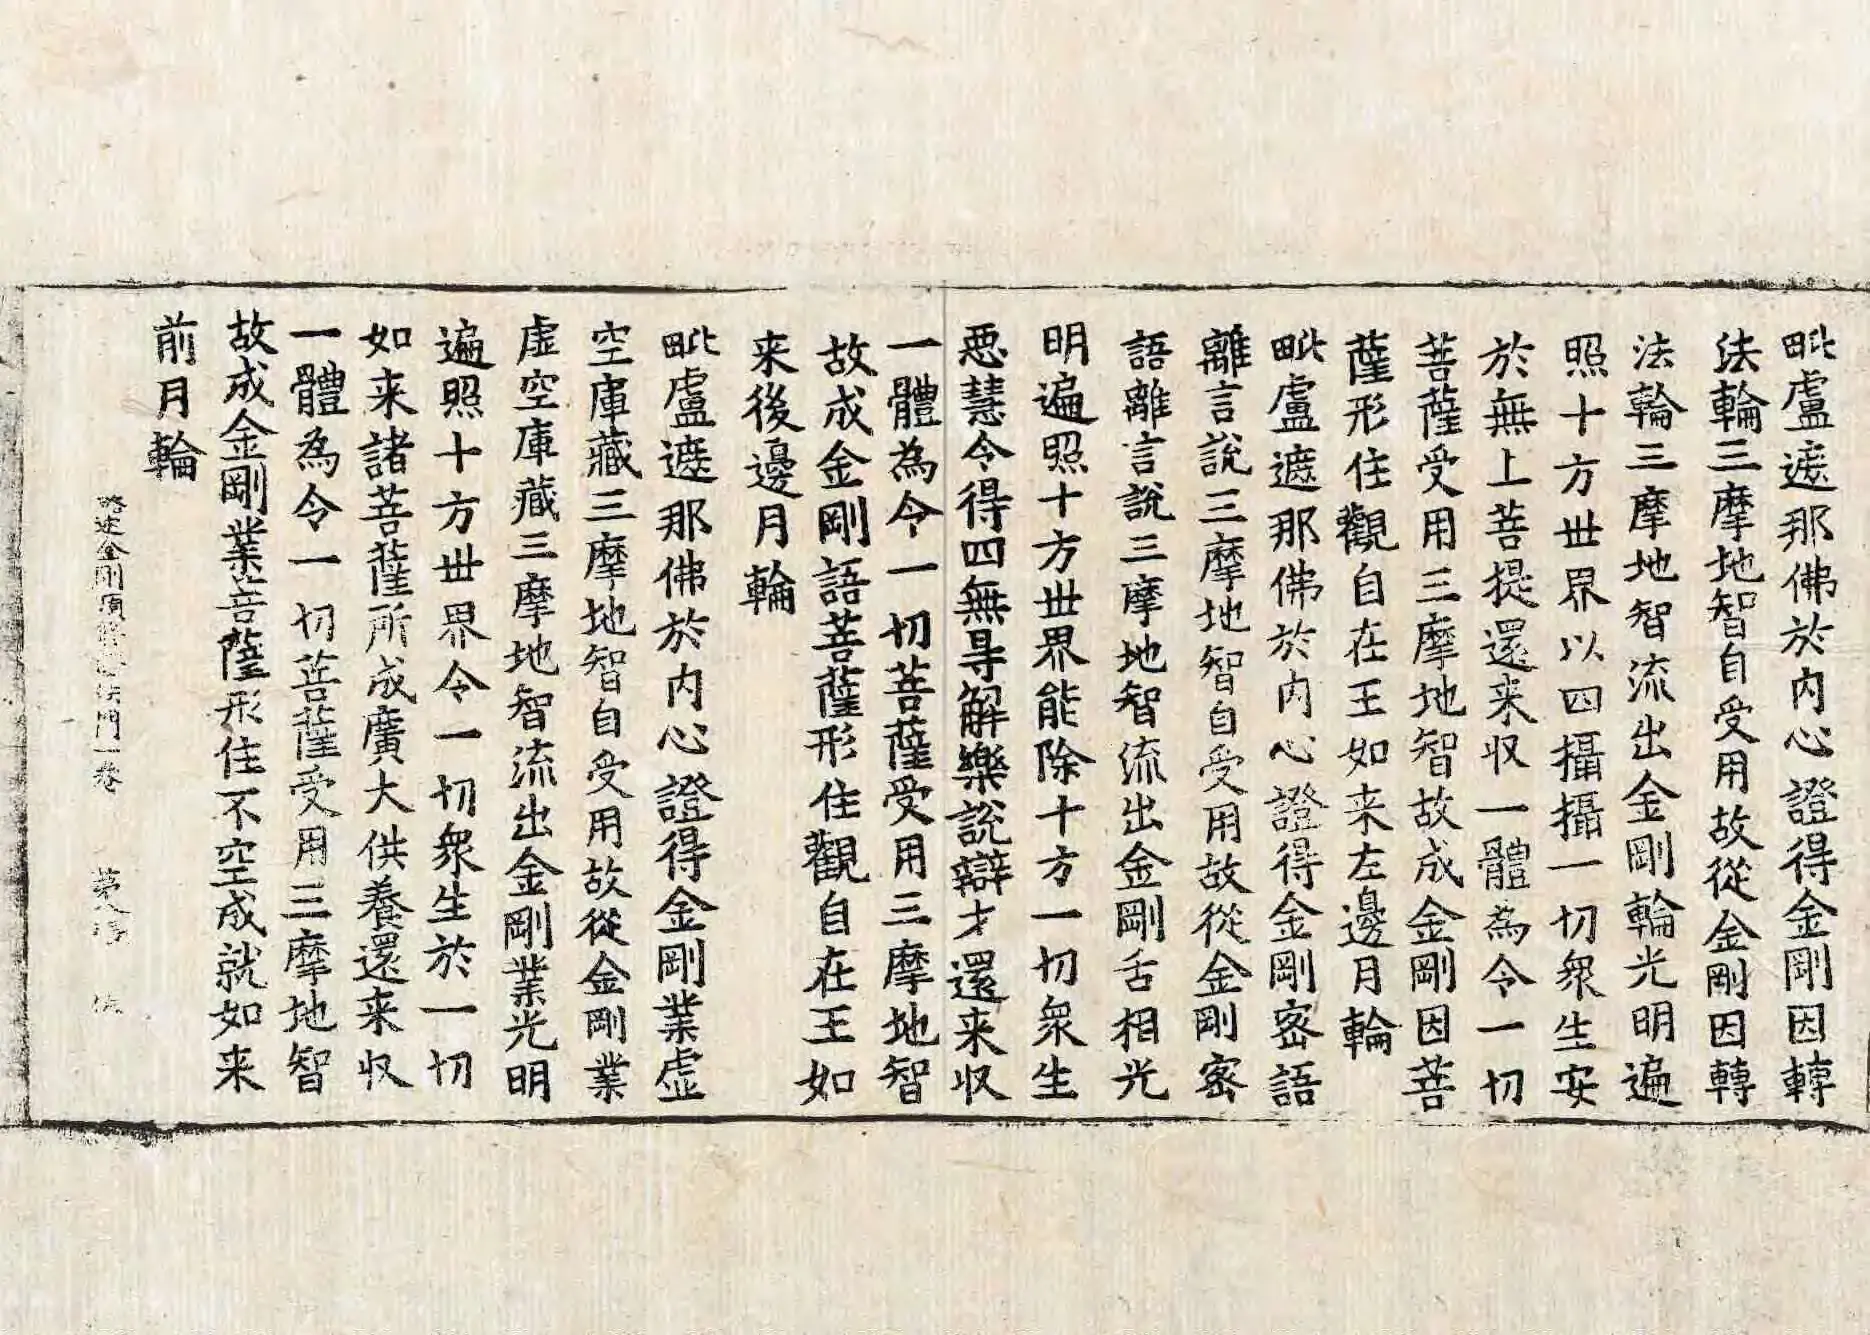 毗盧遮那佛於內心證得金剛因轉
法輪三摩地智自受用故從金剛因轉
法輪三摩地智流出金剛輪光明遍
照十方世界以四攝攝一切衆生安
於無上菩提還来収一體為令一切
菩薩受用三摩地智故成金剛因菩
薩形住觀自在王如来左邊月輪
毗盧遮那佛於內心證得金剛密語
離言說三摩地智自受用故從金剛密
語離言說三摩地智流出金剛舌相光
明遍照十方世界能除十方一切衆生
惡慧令得四無㝵解樂說辯才還来収
一體為令一切菩薩受用三摩地智
故成金剛語菩薩形住觀自在王如
来後邊月輪
毗盧遮那佛於內心證得金剛業虛
空庫藏三摩地智自受用故從金剛業
虛空庫藏三摩地智流出金剛業光明
遍照十方世界令一切衆生於一切
如来諸菩薩所成廣大供養還来収
一體為令一切菩薩受用三摩地智
故成金剛業菩薩形住不空成就如来
前月輪
略述金剛頂 法門一卷 第八